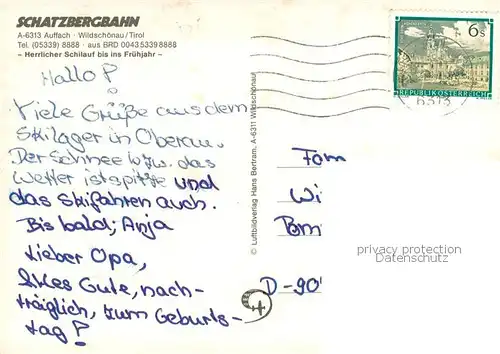 SCHATZBERGBAHN
A-6313 Auffach · Wildschönau/Tirol
Tel. (05339) 8888 · aus BRD 0043 5339 8888
– Herrlicher Schilauf bis ins Frühjahr –
Hallo!
Viele Grüße aus dem
Skilager in Oberau.
Der Schnee bzw. das
Wetter ist spitze und
das Skifahren auch.
Bis bald; Anja
Lieber Opa,
Alles Gute, nach-
träglich, zum Geburts-
tag!
© Luftbildverlag Hans Bertram, A-6311 Wildschönau
6s
REPUBLIK ÖSTERREICH
6313
Fam
Wi
D-90
privacy protection
Datenschutz